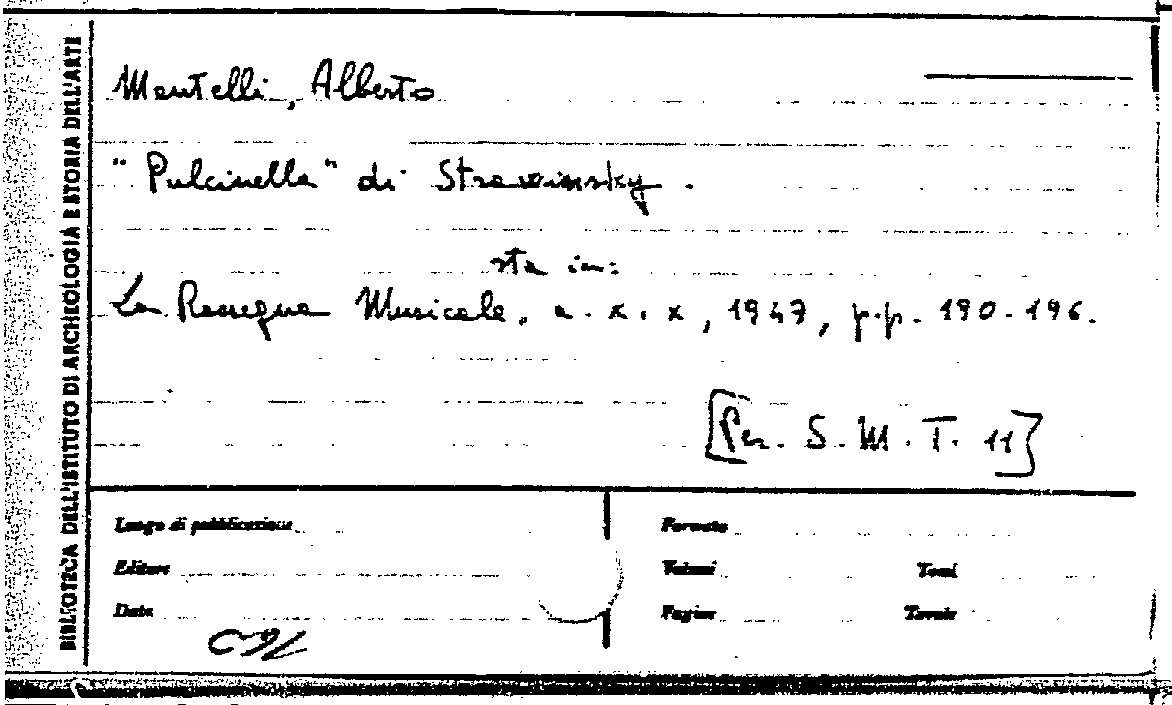 BIBLIOTECA DELL'ISTITUTO DI ARCHEOLOGIA E STORIA DELL'ARTE
Mantelli, Alberto
"Pulcinella" di Strawinsky.
sta in:
La Rassegna Musicale, a. x. x, 1947, p.p. 190-196.
[Per. S. M. T. 11]
Luogo di pubblicazione
Editore
Data
Formato
Volumi Tomi
Pagine Tavole